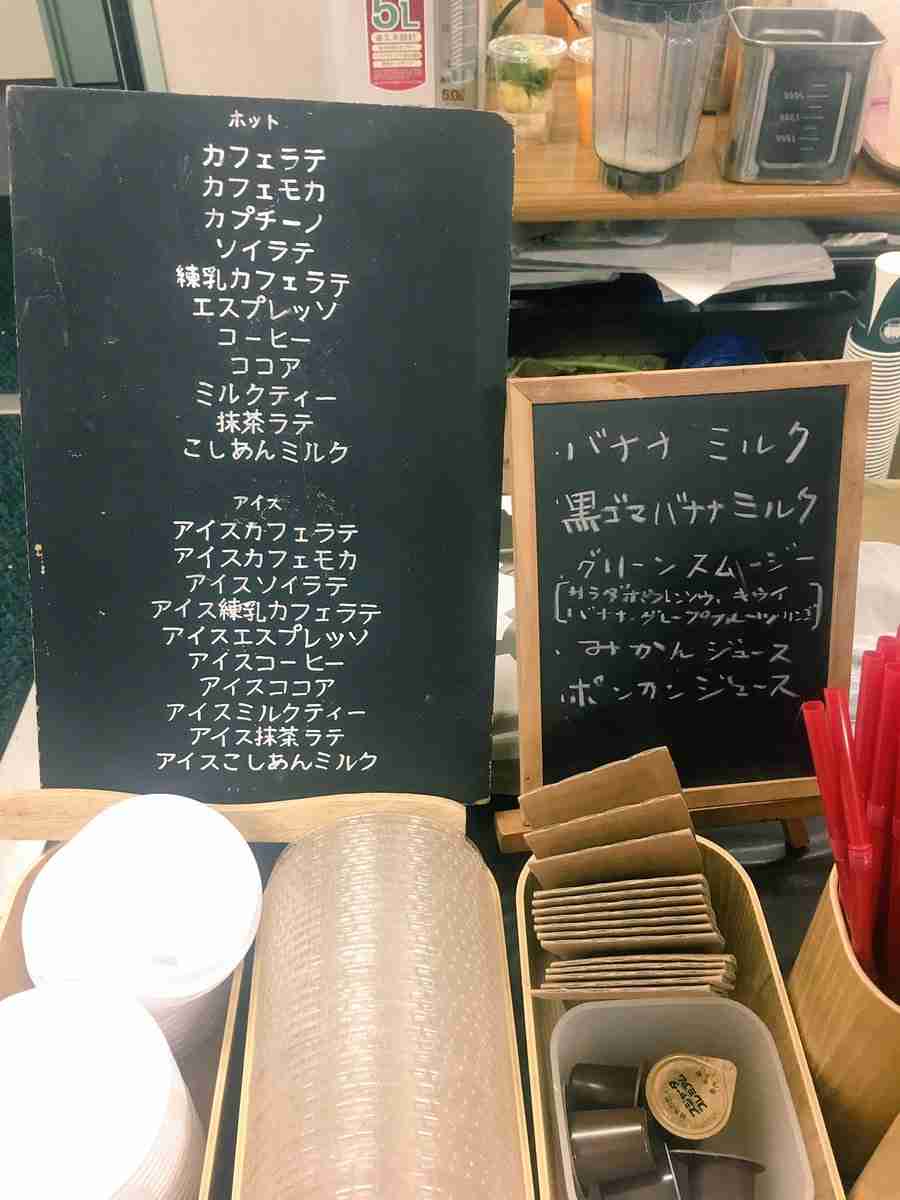 5L
5.0L
ホット
カフェラテ
カフェモカ
カプチーノ
ソイラテ
練乳カフェラテ
エスプレッソ
コーヒー
ココア
ミルクティー
抹茶ラテ
こしあんミルク
アイス
アイスカフェラテ
アイスカフェモカ
アイスソイラテ
アイス練乳カフェラテ
アイスエスプレッソ
アイスコーヒー
アイスココア
アイスミルクティー
アイス抹茶ラテ
アイスこしあんミルク
・バナナ ミルク
・黒ゴマバナナミルク
・グリーンスムージー
[サラダホウレンソウ、キウイ
バナナ、グレープフルーツ、リンゴ]
・みかんジュース
・ポンカンジュース